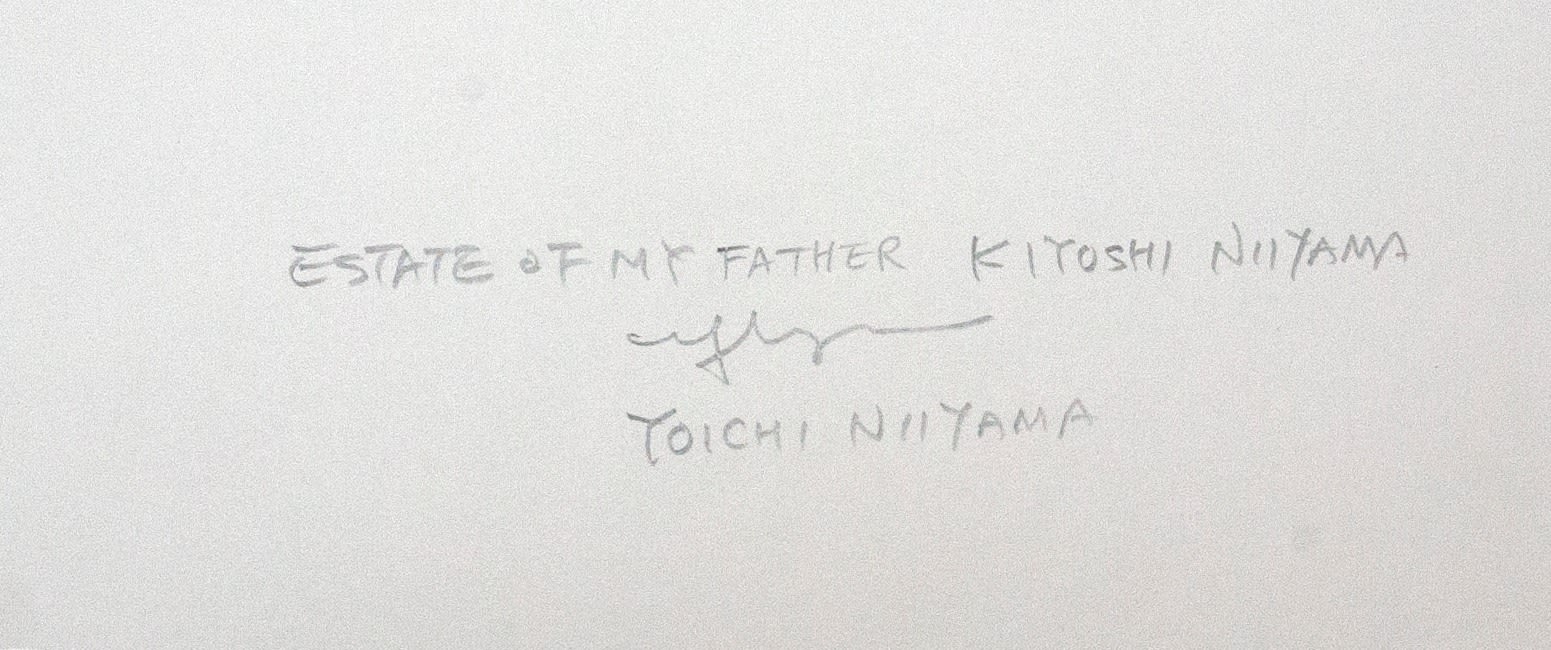 ESTATE OF MY FATHER KIYOSHI NIIYAMA
YOICHI NIIYAMA